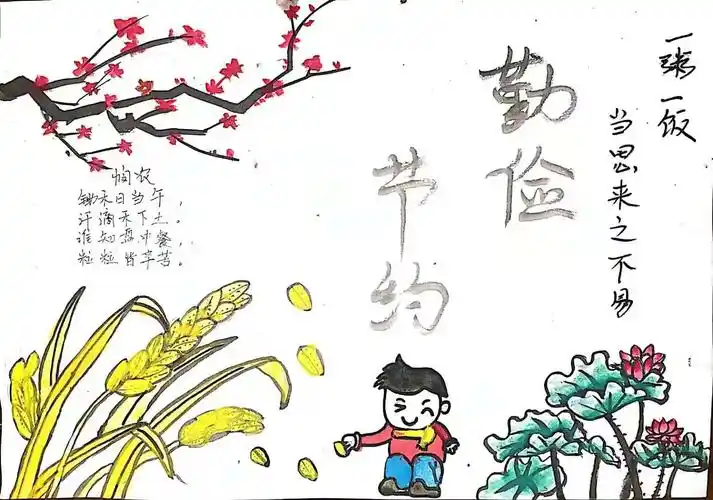 一粥一饭
当思来之不易
勤俭
节约
悯农
锄禾日当午，
汗滴禾下土。
谁知盘中餐，
粒粒皆辛苦。